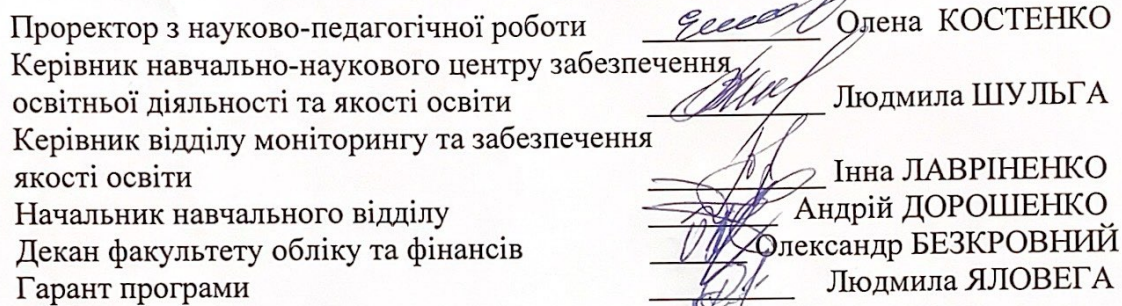 Проректор з науково-педагогічної роботи Олена КОСТЕНКО
Керівник навчально-наукового центру забезпечення
освітньої діяльності та якості освіти Людмила ШУЛЬГА
Керівник відділу моніторингу та забезпечення
якості освіти Інна ЛАВРІНЕНКО
Начальник навчального відділу Андрій ДОРОШЕНКО
Декан факультету обліку та фінансів Олександр БЕЗКРОВНИЙ
Гарант програми Людмила ЯЛОВЕГА